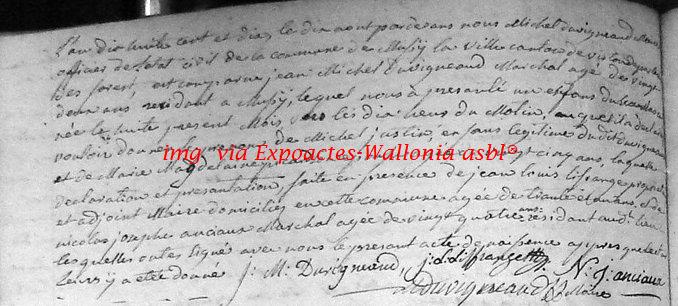 L'an dix huite cent et dix, le dix aout pardevant nous Michel Duvigneaud Maire
officier de l'etat civil de la commune de Mussy la Ville canton de
des forest, est comparue jean Michel Duvigneaud Marchal agé de vingt
deux ans residant a Mussy, lequel nous à presanté un enfans du
née le huite present Mois, les dix heurs du Matin, auquel il a declaré
vouloir donner les prenoms de Michel justin, enfans legitime du dit Duvigneaud
et de Marie Magdelaine cinq ans, laquelle
img via Expoactes-Wallonia asbl©
declaration et presantation faite en presence de jean louis lifrange
et adjoint Maire domiciliés en cette commune agée de trante et un ans, et de
nicolas josephe anciaux Marchal agée de vingt quatre ans residant audit lieu
lesquelles ont signé avec nous le presant acte de naissence apprès que lecture
leurs y a eté donné J: M: Duvigneaud, j: l: lifrange N: J: anciaux
Duvigneaud Maire